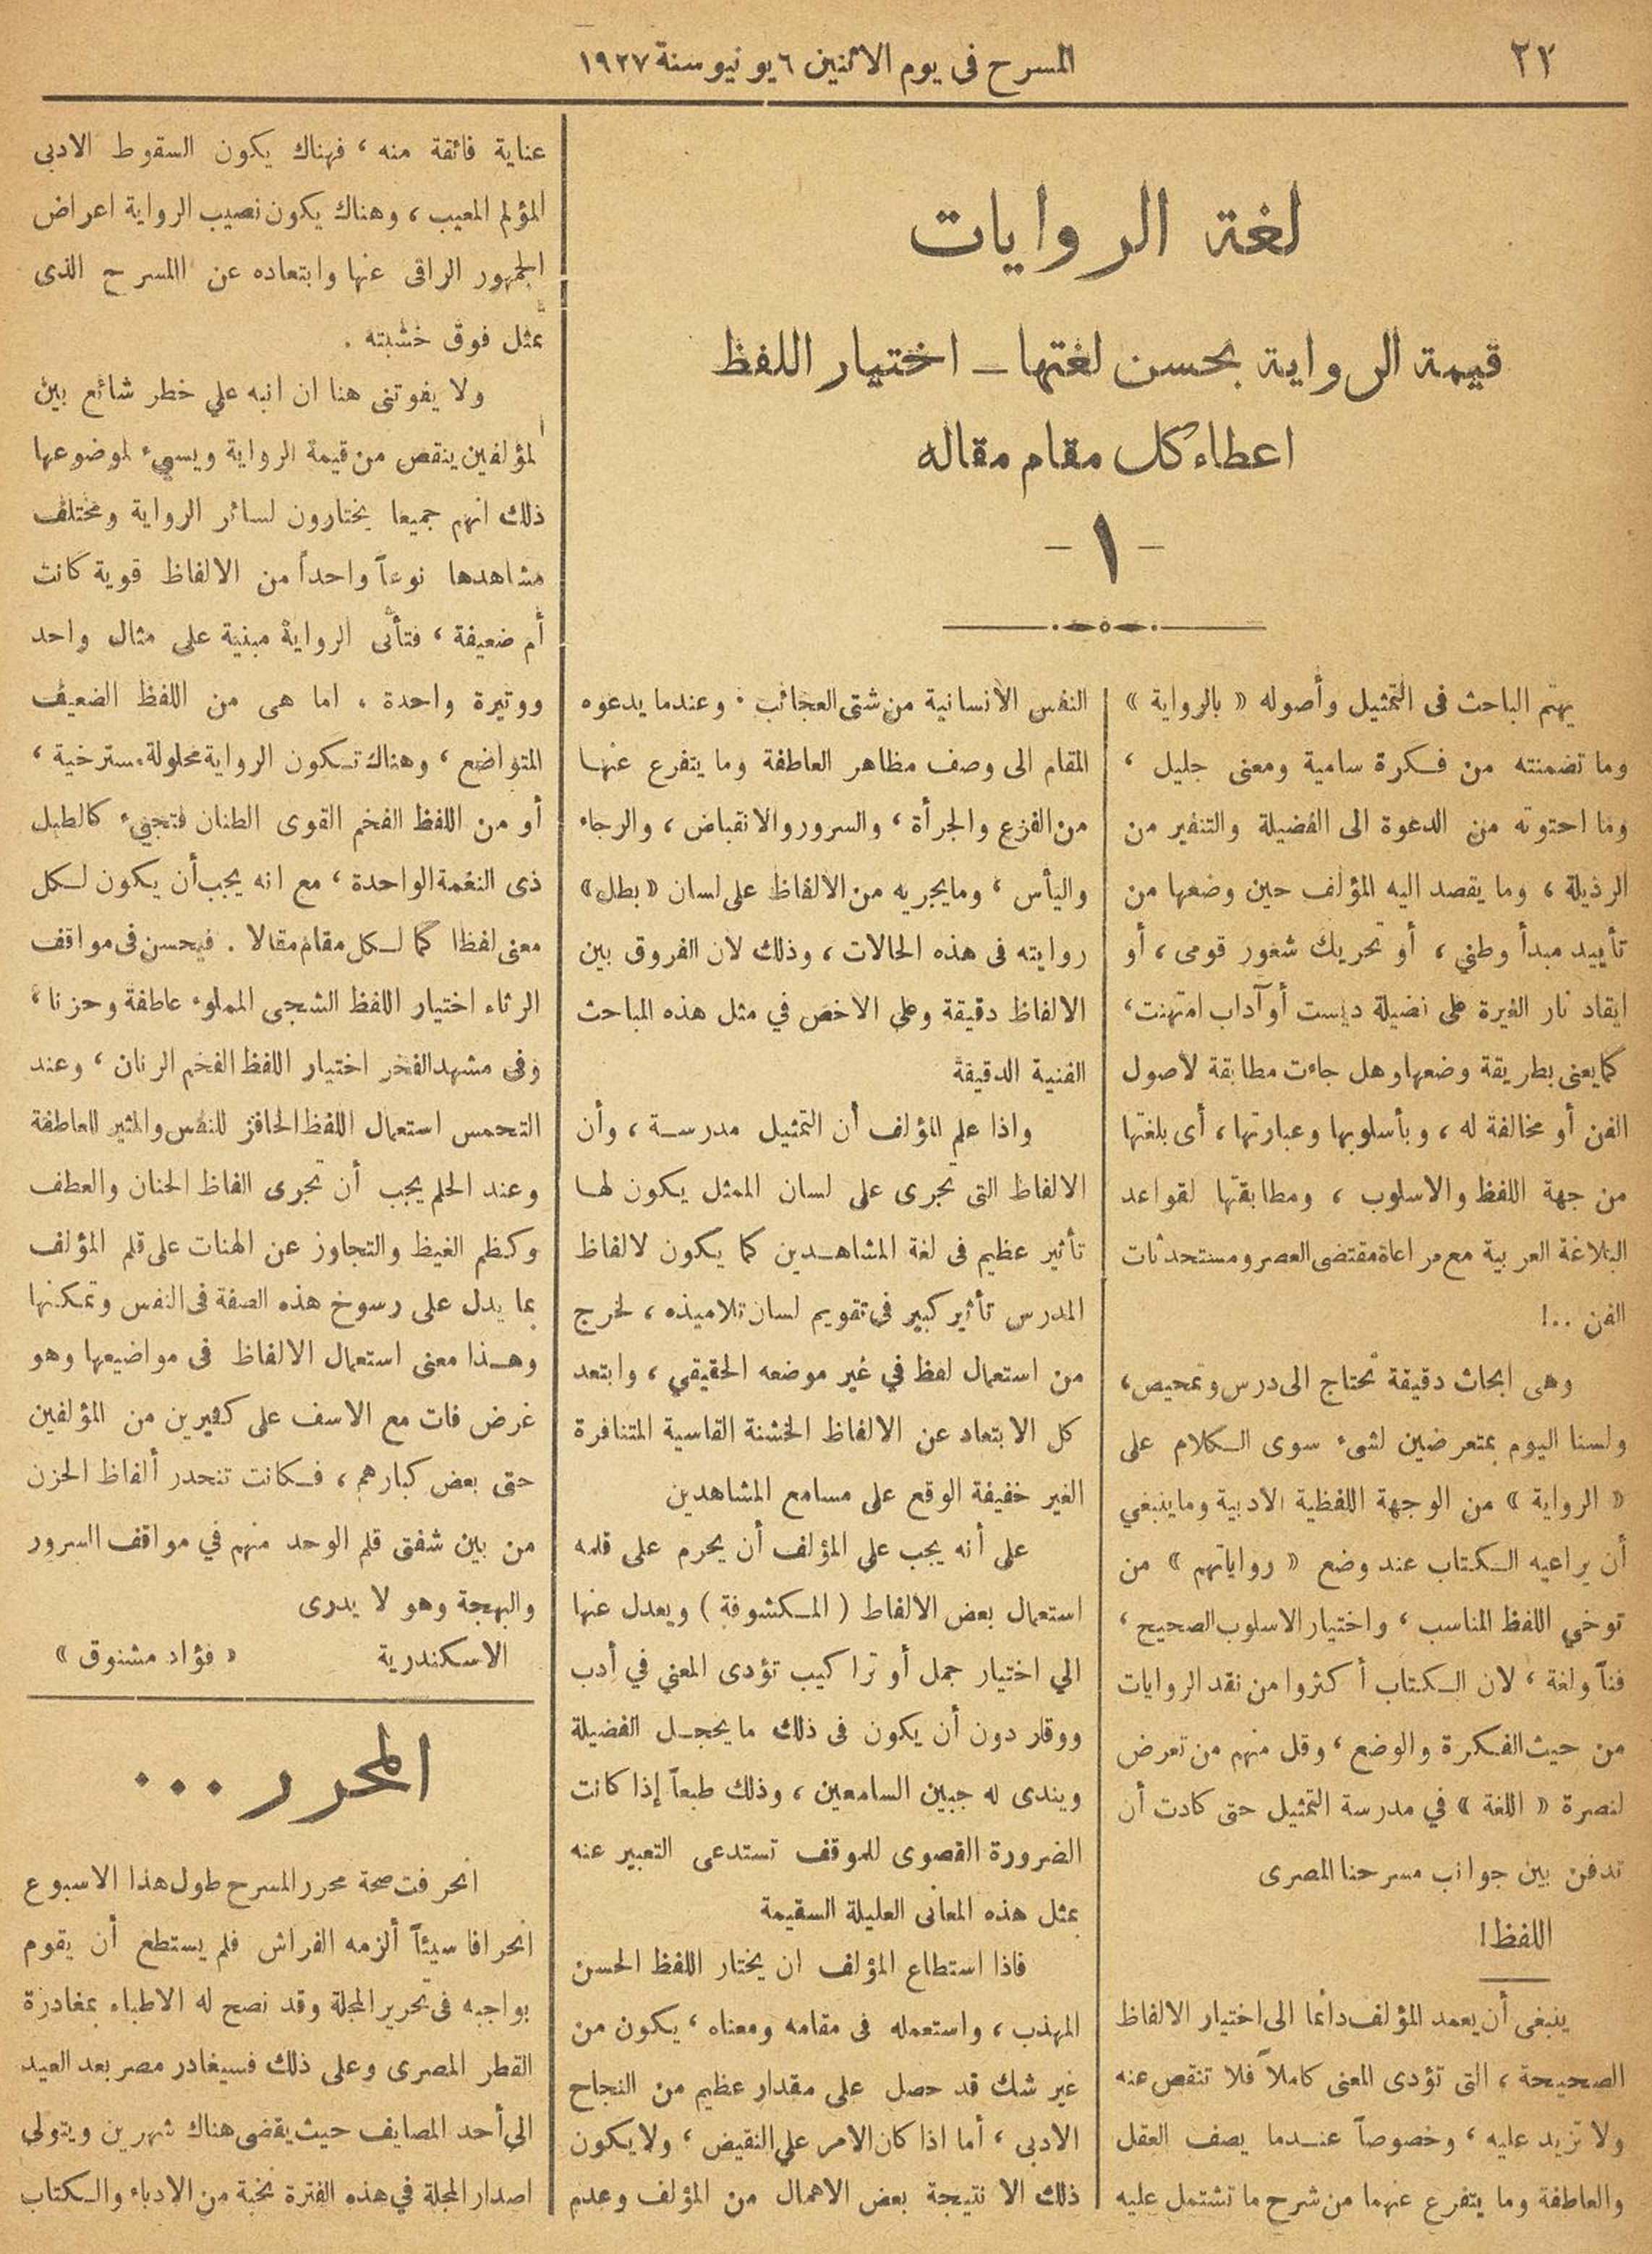 ٢٢
المسرح فى يوم الاثنين ٦ يونيو سنة ١٩٢٧
لغة الروايات
قيمة الرواية بحسن لغتها – اختيار اللفظ
اعطاء كل مقام مقاله
- ١ -
يهتم الباحث فى التمثيل وأصوله « بالرواية »
وما تضمنته من فكرة سامية ومعنى جليل ،
وما احتوته من الدعوة الى الفضيلة والتنفير من
الرذيلة ، وما يقصد اليه المؤلف حين وضعها من
تأييد مبدأ وطني ، أو تحريك شعور قومى ، أو
ايقاد نار الغيرة على فضيلة ديست أو آداب امتهنت ،
كما يعنى بطريقة وضعها وهل جاءت مطابقة لاصول
الفن أو مخالفة له ، وبأسلوبها وعبارتها ، أى بلغتها
من جهة اللفظ والاسلوب ، ومطابقتها لقواعد
البلاغة العربية مع مراعاة مقتضى العصر ومستحدثات
الفن ..!
وهى ابحاث دقيقة تحتاج الى درس وتمحيص ،
ولسنا اليوم بمتعرضين لشىء سوى الكلام على
« الرواية » من الوجهة اللفظية الادبية وما ينبغي
أن يراعيه الكتاب عند وضع « رواياتهم » من
توخي اللفظ المناسب ، واختيار الاسلوب الصحيح ،
فناً ولغة ، لان الكتاب أكثروا من نقد الروايات
من حيث الفكرة والوضع ، وقل منهم من تعرض
لنصرة « اللغة » في مدرسة التمثيل حتى كادت أن
تدفن بين جوانب مسرحنا المصرى
اللفظ!
ينبغى أن يعمد المؤلف دائما الى اختيار الالفاظ
الصحيحة ، التى تؤدى المعنى كاملاً فلا تنقص عنه
ولا تزيد عليه ، وخصوصاً عندما يصف العقل
والعاطفة وما يتفرع عنهما من شرح ما تشتمل عليه
النفس الانسانية من شتى العجائب . وعندما يدعوه
المقام الى وصف مظاهر العاطفة وما يتفرع عنها
من الفزع والجرأة ، والسرور والانقباض ، والرجاء
واليأس ، وما يجريه من الالفاظ على لسان « بطل »
روايته فى هذه الحالات ، وذلك لان الفروق بين
الالفاظ دقيقة وعلي الاخص في مثل هذه المباحث
الفنية الدقيقة
واذا علم المؤلف أن التمثيل مدرسة ، وأن
الالفاظ التى تجرى على لسان الممثل يكون لها
تأثير عظيم فى لغة المشاهدين كما يكون لالفاظ
المدرس تأثير كبير فى تقويم لسان تلاميذه ، لخرج
من استعمال لفظ في غير موضعه الحقيقي ، وابتعد
كل الابتعاد عن الالفاظ الخشنة القاسية المتنافرة
الغير خفيفة الوقع على مسامع المشاهدين
على أنه يجب علي المؤلف أن يحرم على قلمه
استعمال بعض الالفاظ ( المكشوفة ) ويعدل عنها
الي اختيار جمل أو تراكيب تؤدى المعني في أدب
ووقار دون أن يكون فى ذلك ما يخجل الفضيلة
ويندى له جبين السامعين ، وذلك طبعاً إذا كانت
الضرورة القصوى للموقف تستدعى التعبير عنه
بمثل هذه المعانى العليلة السقيمة
فاذا استطاع المؤلف ان يختار اللفظ الحسن
المهذب ، واستعمله فى مقامه ومعناه ، يكون من
غير شك قد حصل على مقدار عظيم من النجاح
الادبى ، أما اذا كان الامر علي النقيض ، ولا يكون
ذلك الا نتيجة بعض الاهمال من المؤلف وعدم
عناية فائقة منه ، فهناك يكون السقوط الادبى
المؤلم المعيب ، وهناك يكون نصيب الرواية اعراض
الجمهور الراقى عنها وابتعاده عن المسرح الذى
تمثل فوق خشبته .
ولا يفوتنى هنا ان انبه علي خطر شائع بين
المؤلفين ينقص من قيمة الرواية ويسيء لموضوعها
ذلك انهم جميعا يختارون لسائر الرواية ومختلف
مشاهدها نوعاً واحداً من الالفاظ قوية كانت
أم ضعيفة ، فتأتى الرواية مبنية على مثال واحد
ووتيرة واحدة ، اما هى من اللفظ الضعيف
المتواضع ، وهناك تكون الرواية محلولة مسترخية ،
أو من اللفظ الفخم القوى الطنان فتجىء كالطبل
ذى النغمة الواحدة ، مع انه يجب أن يكون لكل
معنى لفظا كما لكل مقام مقالا . فيحسن فى مواقف
الرثاء اختيار اللفظ الشجى المملوء عاطفة وحزنا ،
وفى مشهد الفخر اختيار اللفظ الفخم الرنان ، وعند
التحمس استعمال اللفظ الحافز للنفس والمثير للعاطفة
وعند الحلم يجب أن تجرى الفاظ الحنان والعطف
وكظم الغيظ والتجاوز عن الهنات على قلم المؤلف
بما يدل على رسوخ هذه الصفة فى النفس وتمكنها
وهذا معنى استعمال الالفاظ فى مواضيعها وهو
غرض فات مع الاسف على كثيرين من المؤلفين
حتى بعض كبارهم ، فكانت تنحدر ألفاظ الحزن
من بين شفتى قلم الوحد منهم في مواقف السرور
والبهجة وهو لا يدرى
الاسكندرية « فؤاد مشنوق »
المحرر ...
انحرفت صحة محرر المسرح طول هذا الاسبوع
انحرافا سيئاً ألزمه الفراش فلم يستطع أن يقوم
بواجبه فى تحرير المجلة وقد نصح له الاطباء بمغادرة
القطر المصرى وعلى ذلك فسيغادر مصر بعد العيد
الي أحد المصايف حيث يقضى هناك شهرين ويتولي
اصدار المجلة في هذه الفترة نخبة من الادباء والكتاب